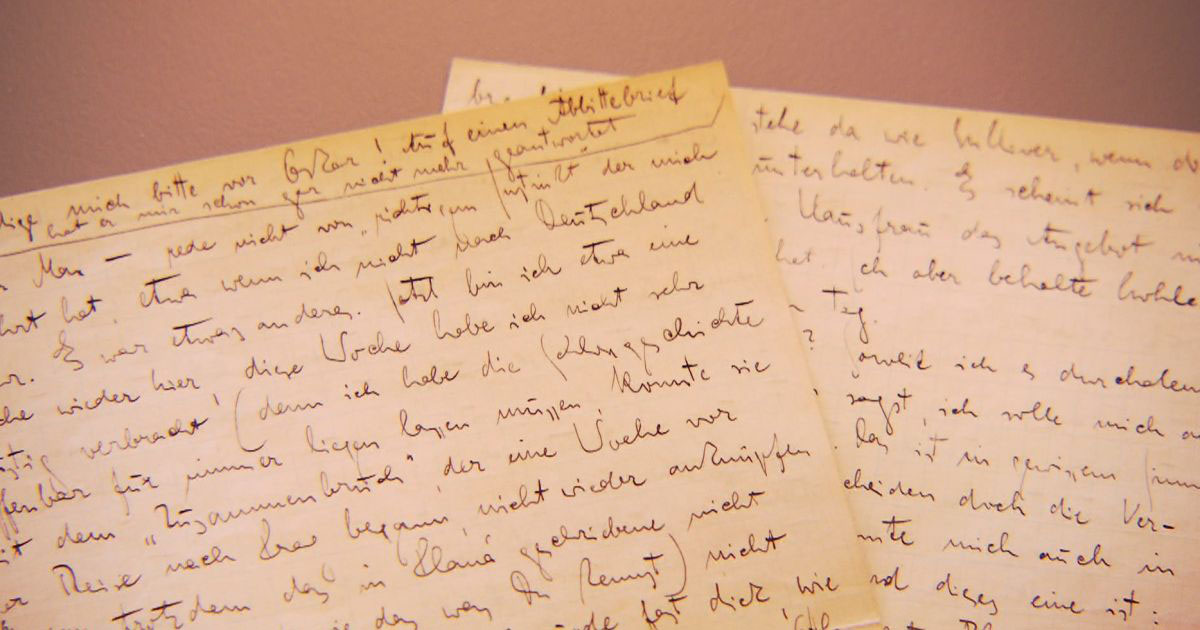 mich bitte vor Oskar! Auf einen Abbittebrief
hat er mir schon gar nicht mehr geantwortet
Max — rede nicht von „richtigem Instinkt" der mich
hat, etwa wenn ich nicht nach Deutschland
Es war etwas anderes. Jetzt bin ich etwa eine
wieder hier, diese Woche habe ich nicht sehr
verbracht (denn ich habe die Schloßgeschichte
offenbar für immer liegen lassen müssen, konnte sie
dem „Zusammenbruch", der eine Woche vor
Reise nach Prag begann, nicht wieder anknüpfen
trotzdem das in Planá geschriebene nicht
was Du kennst) nicht
fast dick, wie
stehe da wie Gulliver, wenn die
unterhalten. Es scheint sich
Hausfrau das Angebot
hat. Ich aber behalte
Tag.
? Soweit ich es durchschauen
sagst, ich solle mich
Das ist in gewissem Sinn
scheiden doch die Ver-
mich auch in
und dieses eine ist: